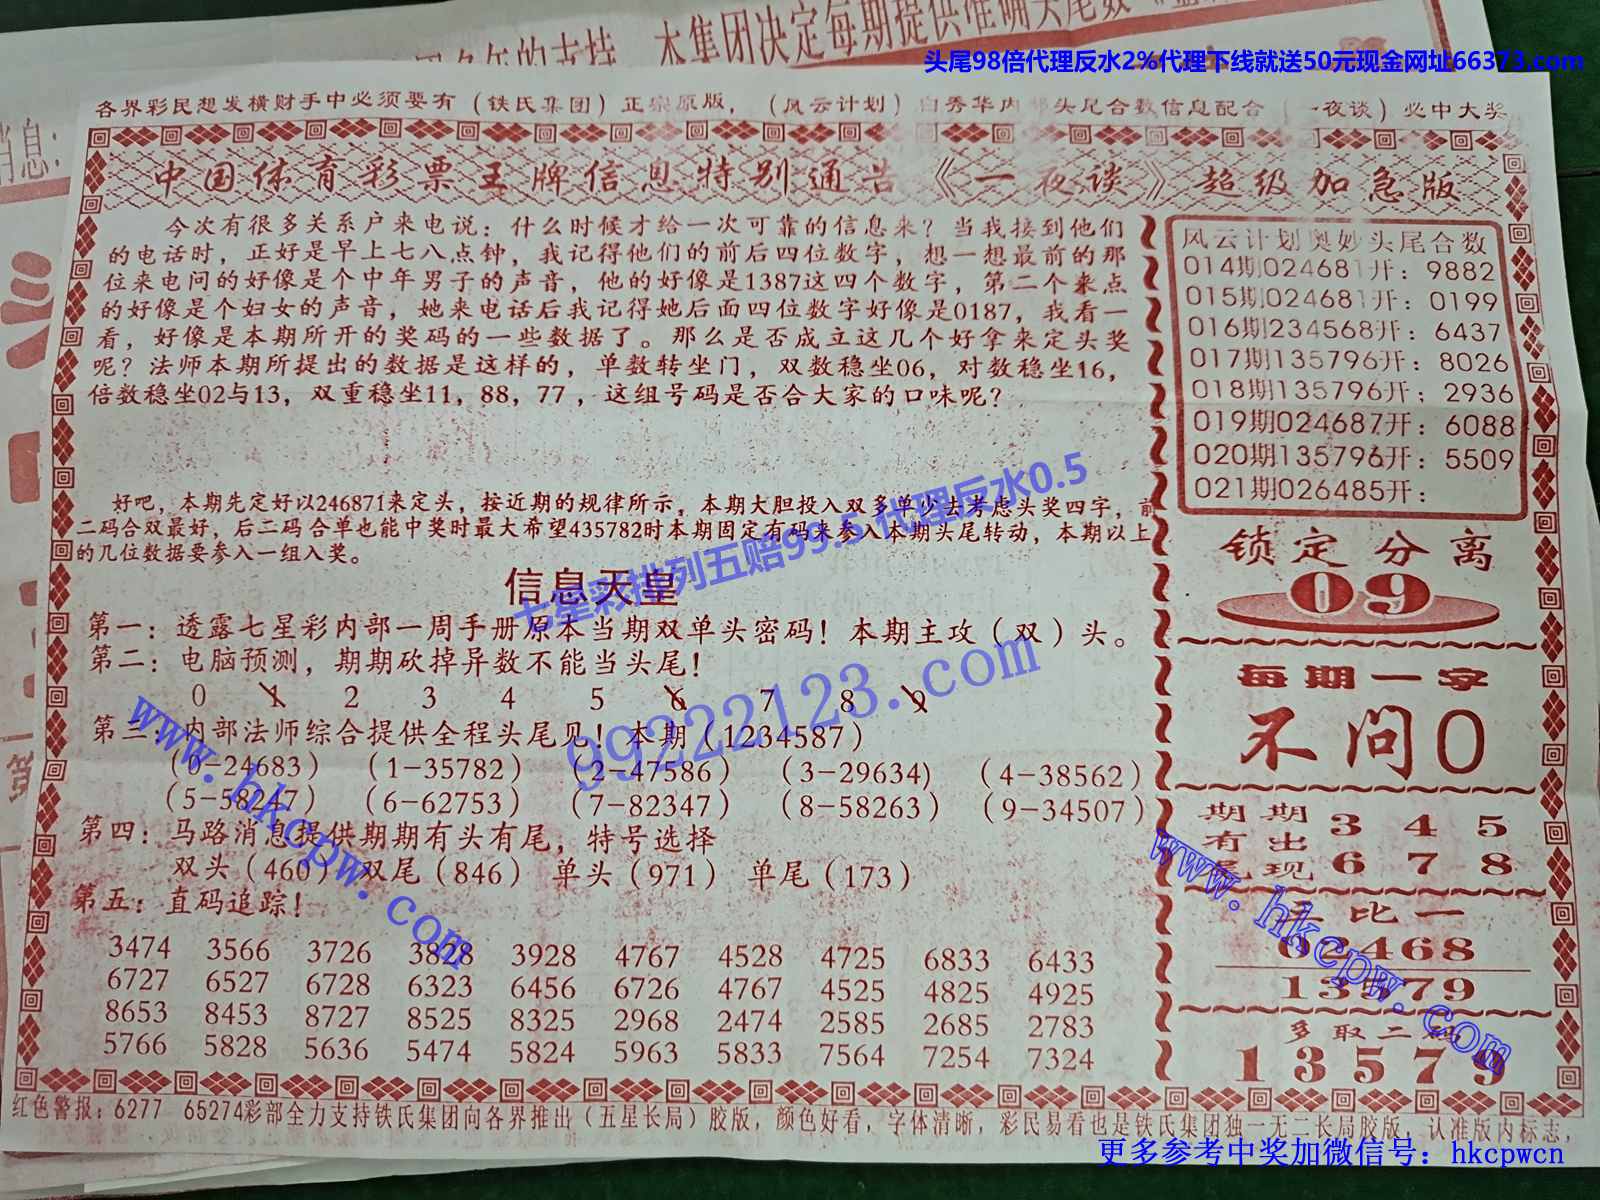 头尾98倍代理反水2%代理下线就送50元现金网址66373.com
本集团决定每期提供准确头尾数
各界彩民想发横财手中必须要有（铁氏集团）正宗原版，（风云计划）白秀华内部头尾合数信息配合（一夜谈）必中大奖
中国体育彩票王牌信息特别通告《一夜谈》超级加急版
今次有很多关系户来电说：什么时候才给一次可靠的信息来？当我接到他们
的电话时，正好是早上七八点钟，我记得他们的前后四位数字，想一想最前的那
位来电问的好像是个中年男子的声音，他的好像是1387这四个数字，第二个来点
的好像是个妇女的声音，她来电话后我记得她后面四位数字好像是0187，我看一
看，好像是本期所开的奖码的一些数据了。那么是否成立这几个好拿来定头奖
呢？法师本期所提出的数据是这样的，单数转坐门，双数稳坐06，对数稳坐16，
倍数稳坐02与13，双重稳坐11，88，77，这组号码是否合大家的口味呢？
好吧，本期先定好以246871来定头，按近期的规律所示，本期大胆投入双多单少去考虑头奖四字，前
二码合双最好，后二码合单也能中奖时最大希望435782时本期固定有码来参入本期头尾转动，本期以上
的几位数据要参入一组入奖。
七星彩排列五赔99.5 代理反水0.5
信息天皇
第一：透露七星彩内部一周手册原本当期双单头密码！本期主攻（双）头。
第二：电脑预测，期期砍掉异数不能当头尾！
0 1 2 3 4 5 6 7 8 9
第三：内部法师综合提供全程头尾见！本期（1234587）
（0-24683）（1-35782）（2-47586）（3-29634)（4-38562）
（5-58247）（6-62753）（7-82347）（8-58263）（9-34507）
第四：马路消息提供期期有头有尾，特号选择
双头（460）双尾（846）单头（971）单尾（173）
第五：直码追踪！
3474 3566 3726 3828 3928 4767 4528 4725 6833 6433
6727 6527 6728 6323 6456 6726 4767 4525 4825 4925
8653 8453 8727 8525 8325 2968 2474 2585 2685 2783
5766 5828 5636 5474 5824 5963 5833 7564 7254 7324
风云计划奥妙头尾合数
014期024681开：9882
015期024681开：0199
016期234568开：6437
017期135796开：8026
018期135796开；2936
019期024687开：6088
020期135796开：5509
021期026485开：
锁定分离
09
每期一字
不问0
期期 3 4 5
有出
尾现 6 7 8
比一
02468
13579
多取二码
13579
红色警报：6277 65274彩部全力支持铁氏集团向各界推出（五星长局）胶版，颜色好看，字体清晰，彩民易看也是铁氏集团独一无二长局胶版，认准版内标志，
99222123.com
www.hkcpw.com
www.hkcpw.com
更多参考中奖加微信号：hkcpwcn
消息：
第